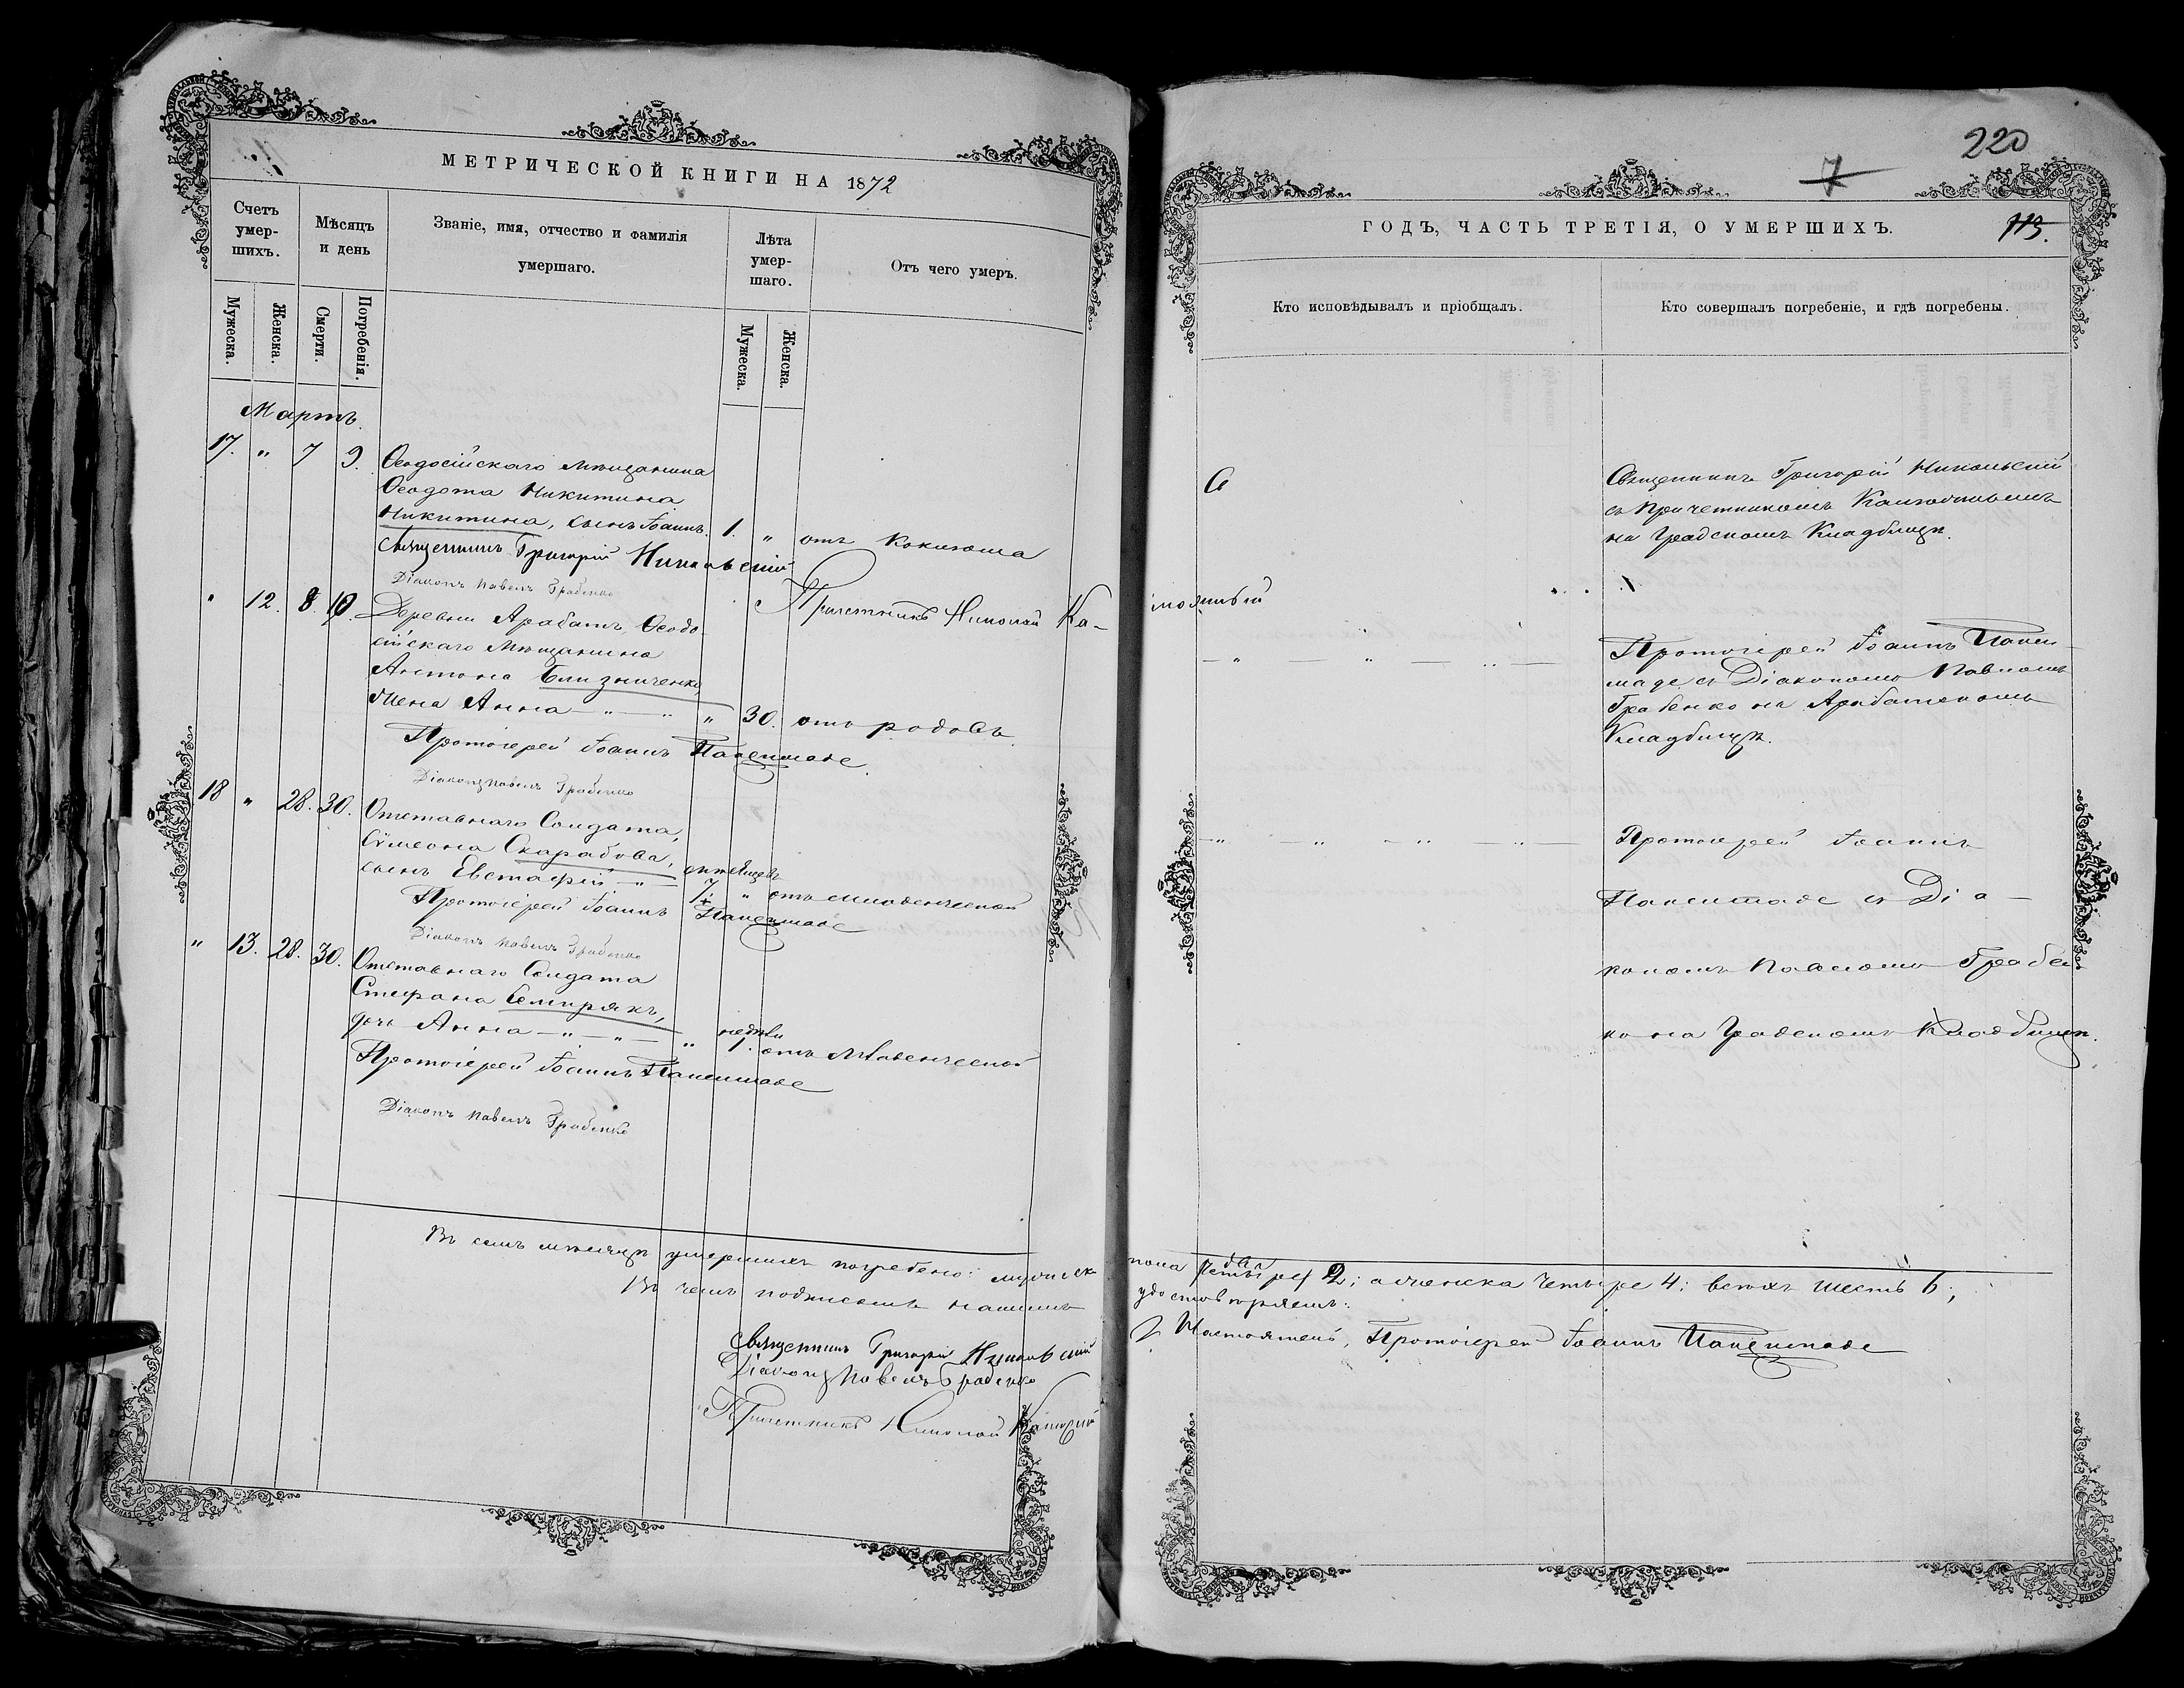 МЕТРИЧЕСКОЙ КНИГИ НА 1872
Счетъ умер-шихъ.
Мѣсяцъ и день
Званіе, имя, отчество и фамилія умершаго.
Лѣта умер-шаго.
Отъ чего умеръ.
Мужеска.
Женска.
Смерти.
Погребенія.
Мужеска.
Женска.
Мартъ.
17. " 7 9. Ѳеодосійскаго мѣщанина
Ѳеодота Никитина
Никитина, сынъ Іоаннъ. 1. " отъ коклюша
Священникъ Григорій Никольскій
Діаконъ Павелъ Грабенко
Причетникъ Николай Ка-
" 12. 8. 10. Деревни Арабатъ, Ѳеодо-
сійскаго мѣщанина
Антона Близниченко,
жена Анна — " — " " 30. отъ родовъ.
Протоіерей Іоаннъ Папеншаде.
Діаконъ Павелъ Грабенко
18 " 28. 30. Отставнаго Солдата,
Сѵмеона Скарабова,
сынъ Евстафій — "
7. " отъ младенческой
Протоіерей Іоаннъ
Діаконъ Павелъ Грабенко
" 13. 28. 30. Отставнаго Солдата
Стефана Семирякъ,
дочь Анна — " — " — " недѣли
1. отъ Младенческой
Протоіерей Іоаннъ
Діаконъ Павелъ Грабенко
Въ семъ мѣсяцѣ умершихъ погребено: мужеск-
Въ чемъ подписомъ нашимъ
Священникъ Григорій Никольскій
Діаконъ Павелъ Грабенко
Причетникъ Николай
220
7
113.
ГОДЪ, ЧАСТЬ ТРЕТІЯ, О УМЕРШИХЪ.
Кто исповѣдывалъ и пріобщалъ.
Кто совершалъ погребеніе, и гдѣ погребены.
Священникъ Григорій Никольскій
съ Причетникомъ
на Градскомъ Кладбищѣ.
Протоіерей Іоаннъ Папен-
шаде съ Діакономъ Павломъ
Грабенко на Арабатскомъ
Кладбищѣ.
Протоіерей Іоаннъ
Папеншаде съ Діа-
кономъ Павломъ Грабен-
ко на Градскомъ Кладбищѣ.
пола два 2; а женска четыре 4; всѣхъ шесть 6;
удостовѣряемъ:
Настоятель, Протоіерей Іоаннъ Папеншаде